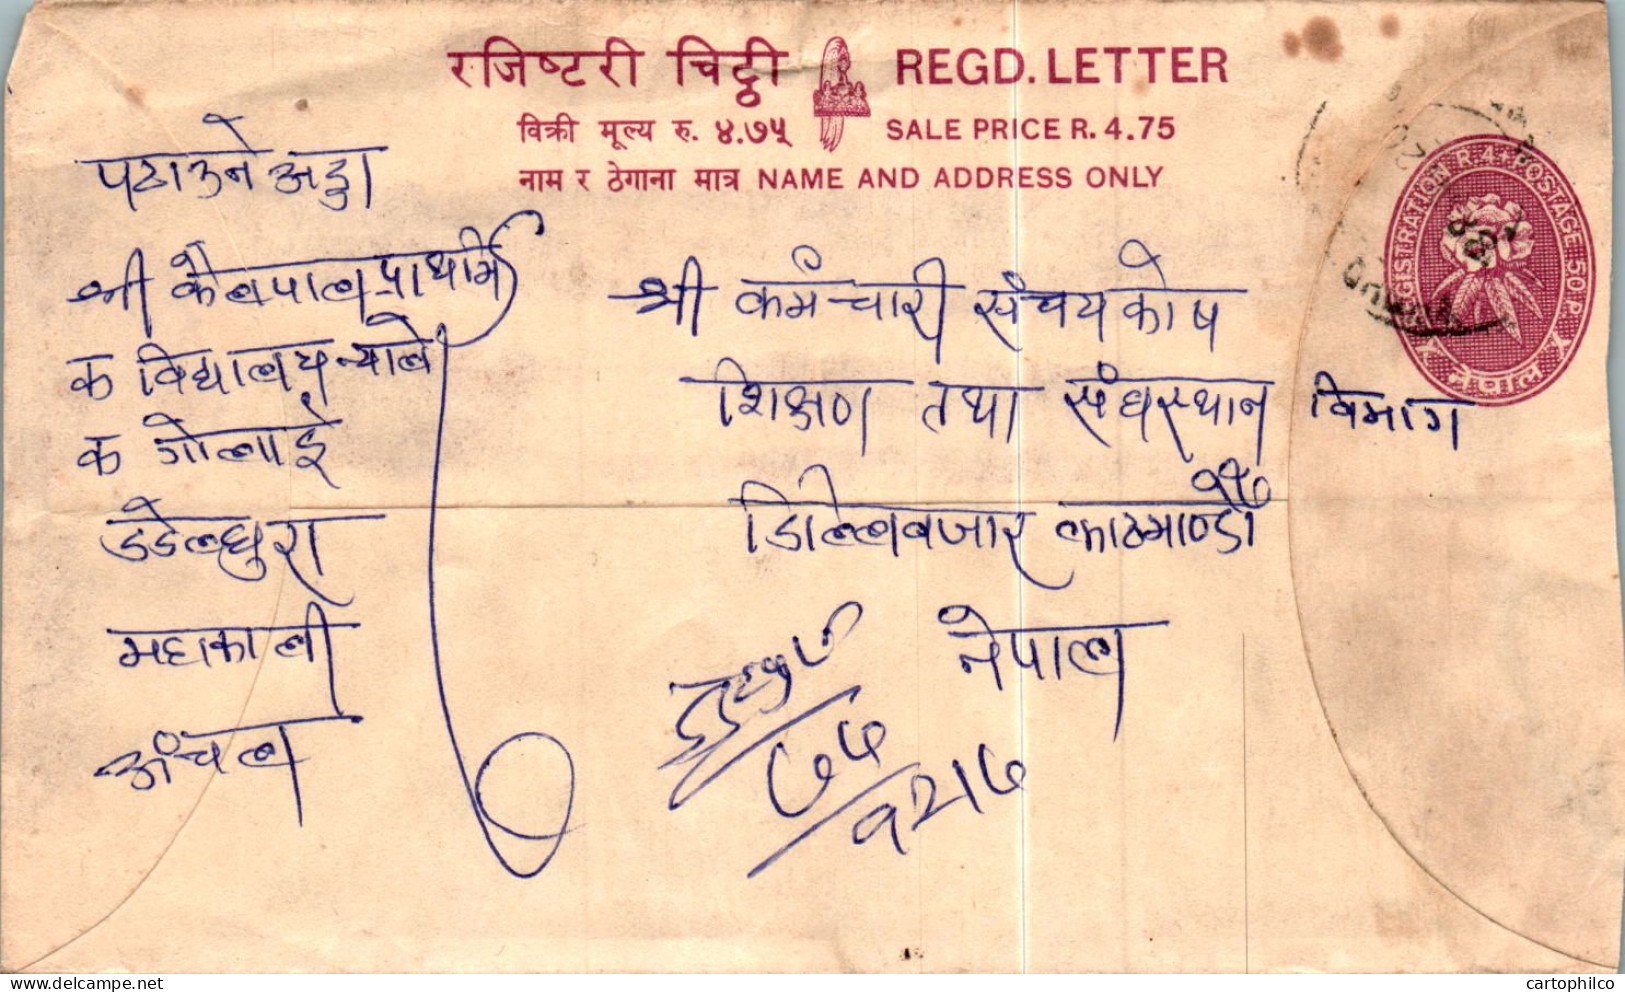 रजिष्टरी चिठ्ठी REGD. LETTER
विक्री मूल्य रु. ४.७५ SALE PRICE R. 4.75
नाम र ठेगाना मात्र NAME AND ADDRESS ONLY
REGISTRATION R. 4. POSTAGE 50 P.
नेपाल
पठाउने अड्डा
श्री कैलपाल प्राथमि
क विद्यालय
क गोलाई
डडेल्धुरा
महाकाली
अंचल
श्री कर्मचारी संचय कोष
शिक्षण तथा संघस्थान विभाग
डिल्लिबजार काठमाण्डौ
नेपाल
cartophilco